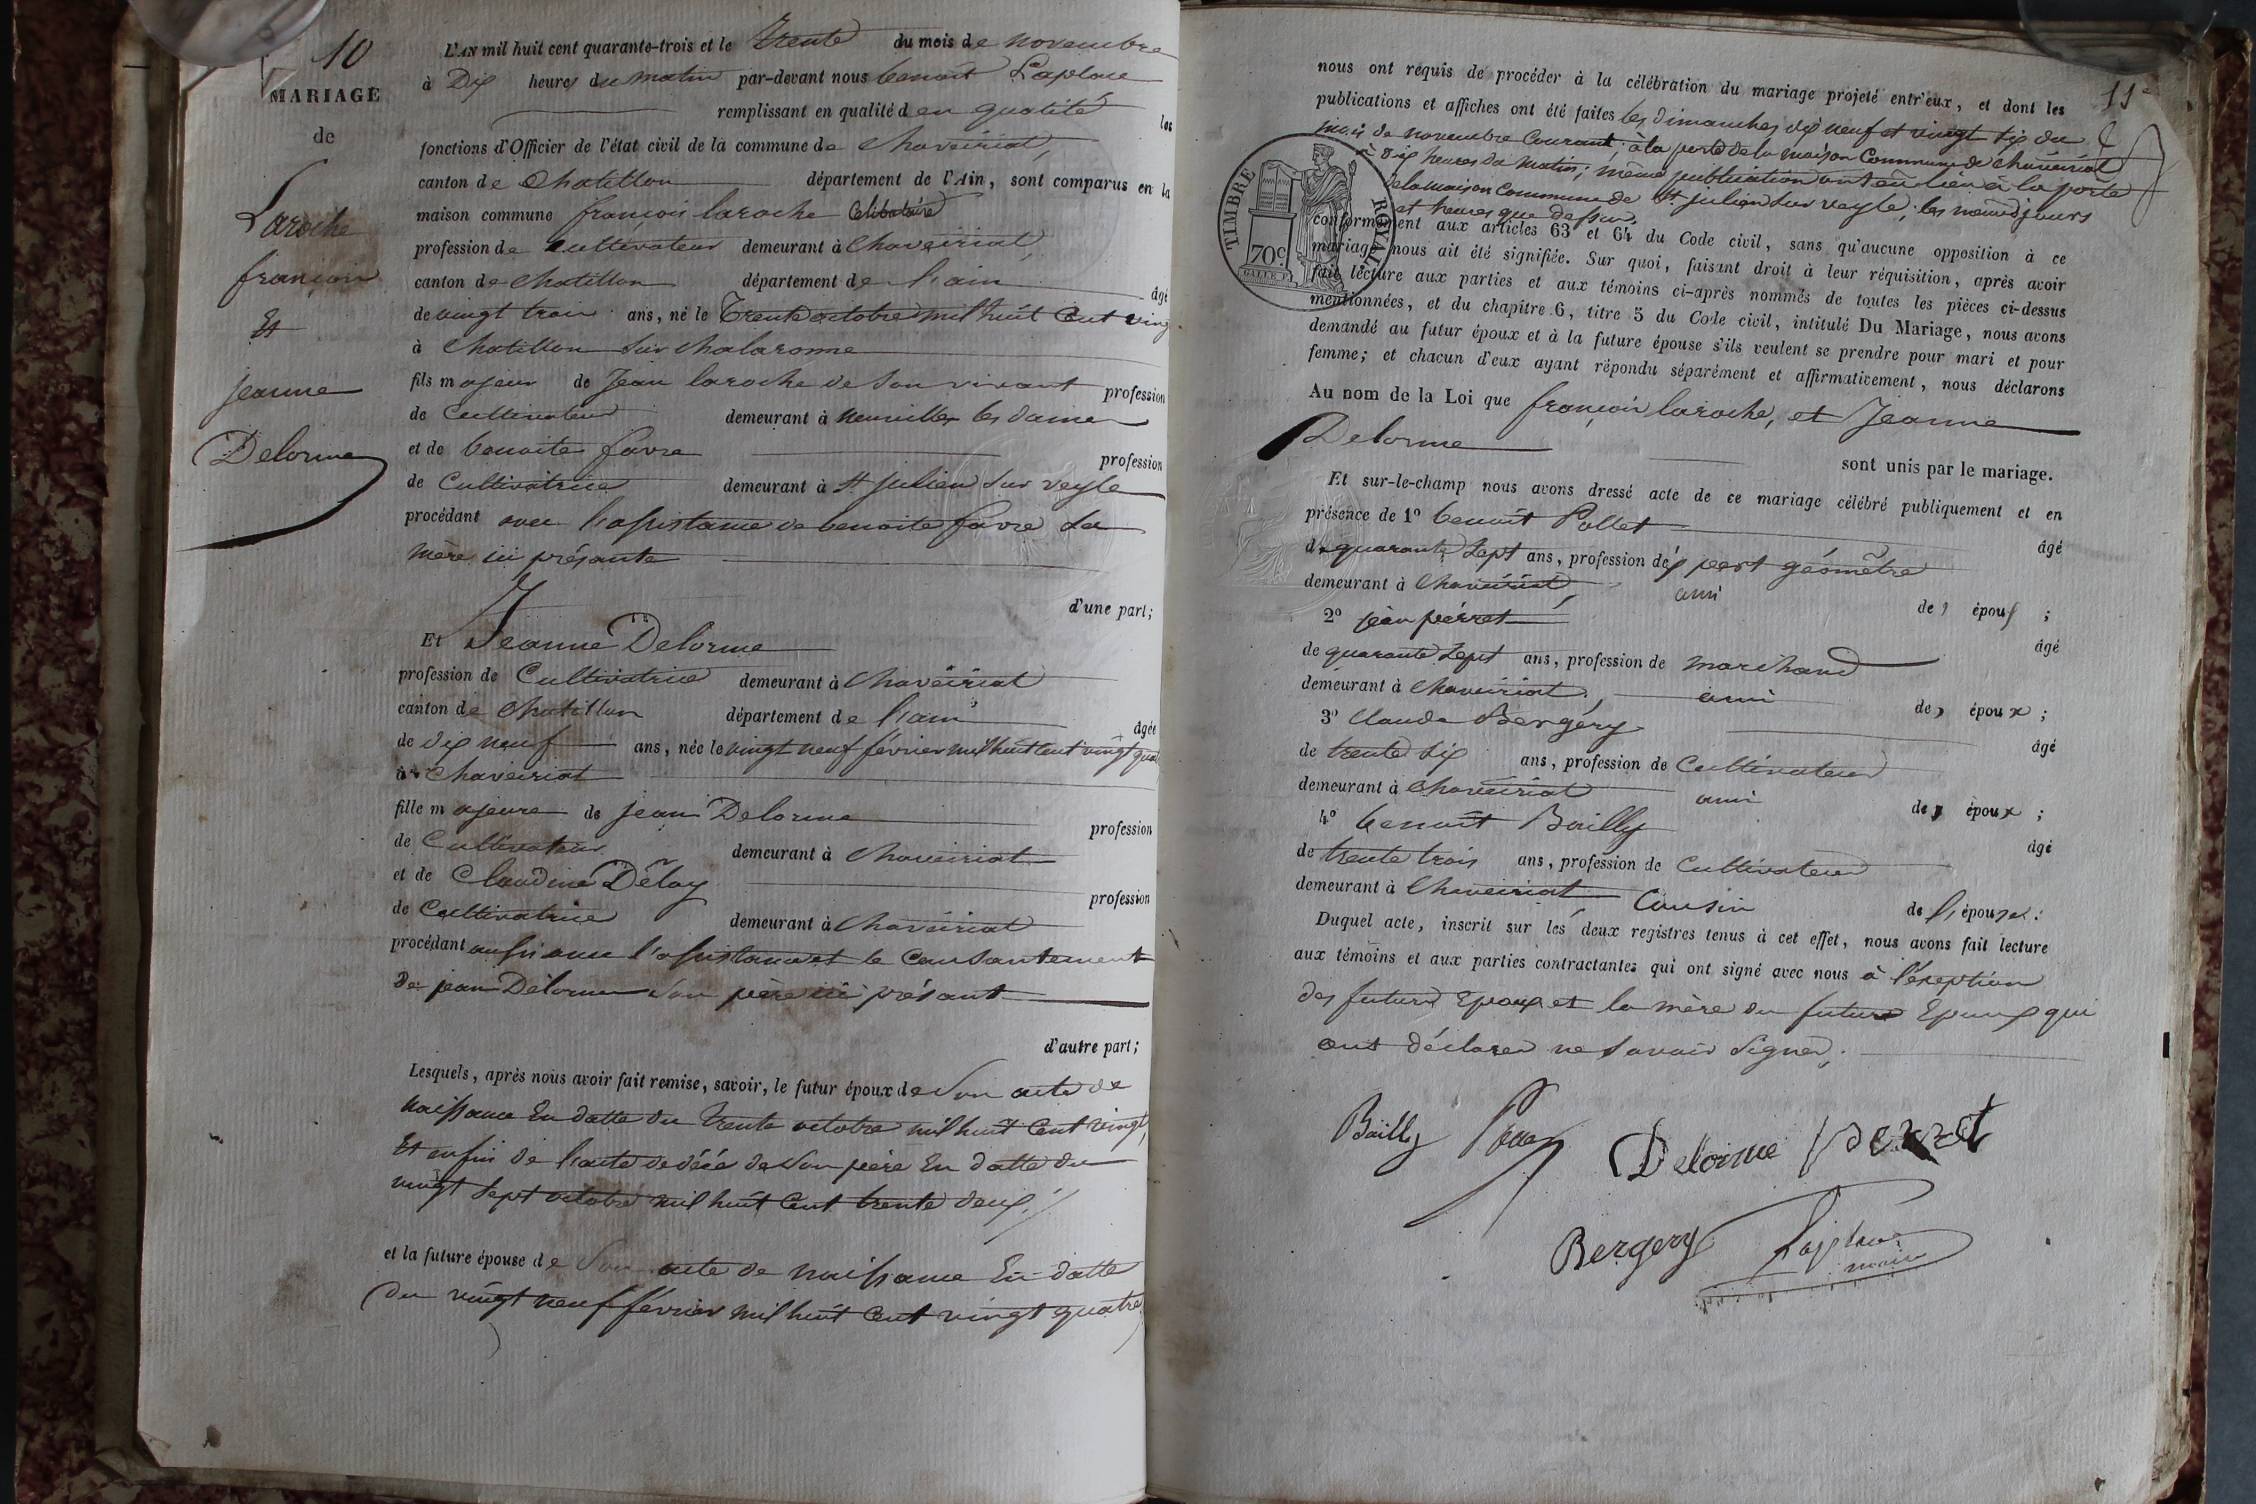 10
MARIAGE
de
Laroche
françois
Et
jeanne
Delorme
L'AN mil huit cent quarante-trois et le trente du mois de novembre
à Dix heures du matin par-devant nous benoit Laplace
remplissant en qualité d en qualité les
fonctions d'Officier de l'état civil de la commune de chaveiriat,
canton de Chatillon département de l'Ain, sont comparus en la
maison commune françois laroche Celibataire
profession de cultivateur demeurant à chaveiriat,
canton de chatillon département de l'ain âgé
de vingt trois ans, né le trente octobre mil huit Cent vingt
à Chatillon sur chalaronne
fils majeur de Jean laroche de Son vivant profession
de Cultivateur demeurant à neuville les dames
et de benoite favre profession
de Cultivatrice demeurant à St julien Sur veyle
procédant avec l'assistance de benoite favre Sa
mère ici présante
d'une part;
Et Jeanne Delorme
profession de Cultivatrice demeurant à Chaveiriat
canton de Chatillon département de l'ain âgée
de dix neuf ans, née le vingt neuf février mil huit cent vingt quatre
à Chaveiriat
fille majeure de jean Delorme profession
de Cultivateur demeurant à Chaveiriat
et de Claudine Déloy profession
de Cultivatrice demeurant à Chaveiriat
procédant aussi avec l'assistance et le Consantement
De jean Delorme Son père ici présant
d'autre part;
Lesquels, après nous avoir fait remise, savoir, le futur époux de Son acte de
naissance En datte du trente octobre mil huit Cent vingt,
Et enfin de l'acte de décé de Son père En datte du
vingt Sept octobre mil huit Cent trente deux;
et la future épouse de Son acte de naissance En datte
du vingt neuf février mil huit Cent vingt quatre
11e
nous ont requis de procéder à la célébration du mariage projeté entr'eux, et dont les
publications et affiches ont été faites les dimanches dix neuf et vingt six du
mois de novembre Courant, à la porte de la maison Commune de chaveiriat
à dix heures du matin; même publication ont eu lieu à la porte
de la maison Commune de St julien Sur veyle, les mêmes jours
et heures que dessus.
TIMBRE ROYAL
70c.
conformément aux articles 63 et 64 du Code civil, sans qu'aucune opposition à ce
mariage nous ait été signifiée. Sur quoi, faisant droit à leur réquisition, après avoir
fait lecture aux parties et aux témoins ci-après nommés de toutes les pièces ci-dessus
mentionnées, et du chapitre 6, titre 5 du Code civil, intitulé Du Mariage, nous avons
demandé au futur époux et à la future épouse s'ils veulent se prendre pour mari et pour
femme; et chacun d'eux ayant répondu séparément et affirmativement, nous déclarons
Au nom de la Loi que françois laroche, et Jeanne
Delorme
sont unis par le mariage.
Et sur-le-champ nous avons dressé acte de ce mariage célébré publiquement et en
présence de 1º benoit Pollet âgé
de quarante Sept ans, profession d'expert géomètre
demeurant à Chaveiriat, ami de s époux ;
2º jean perret âgé
de quarante Sept ans, profession de marchand
demeurant à Chaveiriat, ami des époux ;
3º Claude Bergéry âgé
de trente six ans, profession de Cultivateur
demeurant à Chaveiriat ami des époux ;
4º benoit Bailly âgé
de trente trois ans, profession de Cultivateur
demeurant à Chaveiriat Cousin de l'épouse.
Duquel acte, inscrit sur les deux registres tenus à cet effet, nous avons fait lecture
aux témoins et aux parties contractantes qui ont signé avec nous à l'éxeption
des futurs Epoux et la mère du futurs Epoux qui
ont déclarer ne Savoir Signer.
Bailly Delorme perret
Bergery Laplace
maire